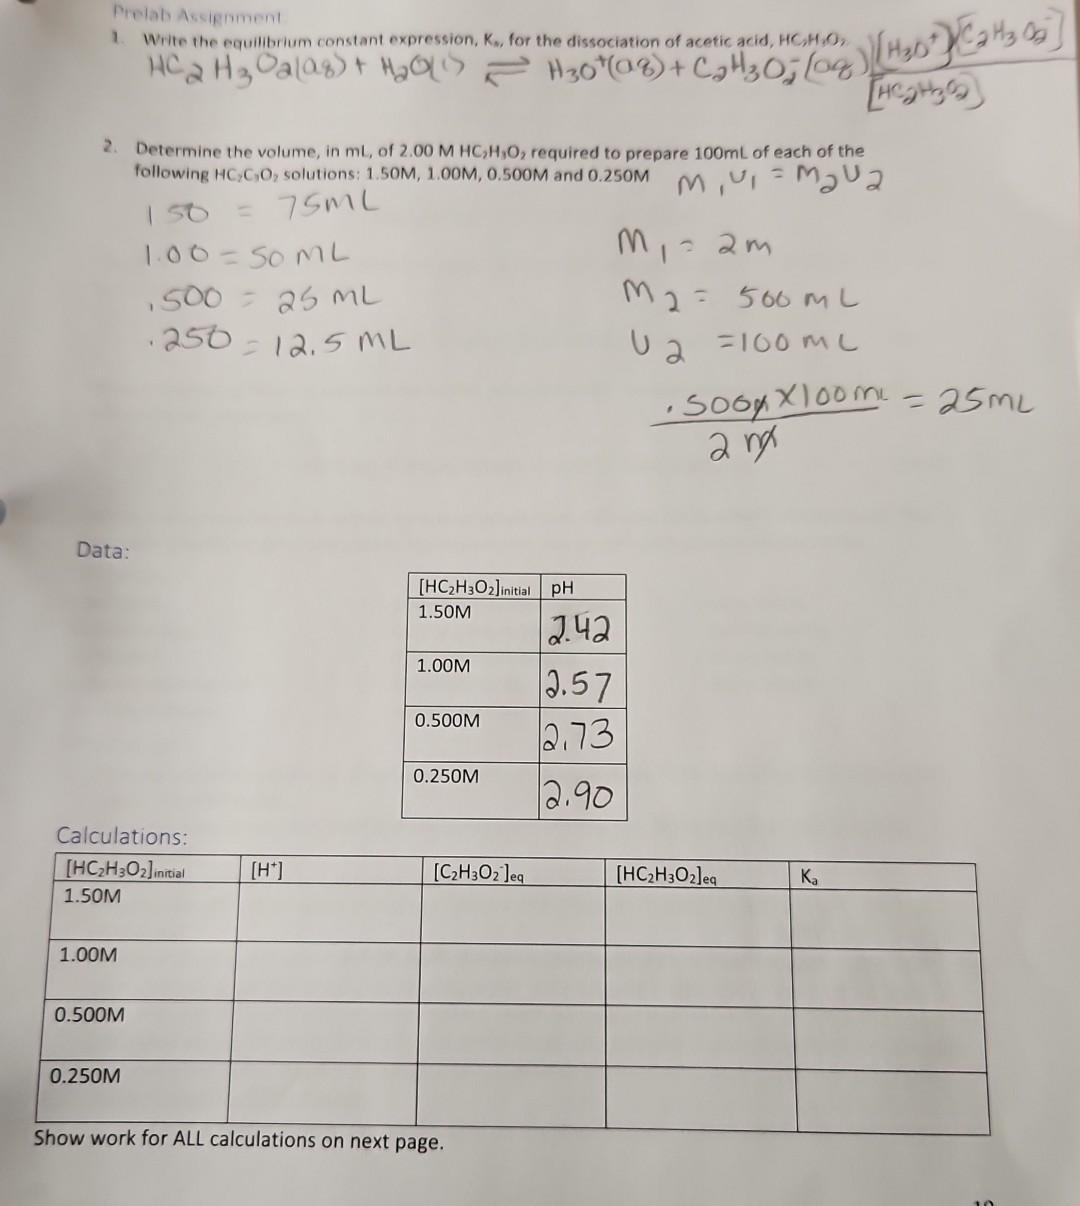 Prelab Assignment
1. Write the equilibrium constant expression, Kₐ, for the dissociation of acetic acid, HC₂H₃O₂.
HC₂H₃O₂(aq) + H₂O(l) ⇌ H₃O⁺(aq) + C₂H₃O₂⁻(aq) [H₃O⁺][C₂H₃O₂⁻]
[HC₂H₃O₂]
2. Determine the volume, in mL, of 2.00 M HC₂H₃O₂ required to prepare 100mL of each of the
following HC₂C₃O₂ solutions: 1.50M, 1.00M, 0.500M and 0.250M M₁V₁ = M₂V₂
150 = 75mL
1.00 = 50 mL
.500 = 25 mL
.250 = 12.5 mL
M₁ = 2m
M₂ = 500 mL
V₂ = 100 mL
.500M X 100 mL = 25mL
2 M
Data:
[HC₂H₃O₂]initial pH
1.50M 2.42
1.00M 2.57
0.500M 2.73
0.250M 2.90
Calculations:
[HC₂H₃O₂]initial [H⁺] [C₂H₃O₂⁻]eq [HC₂H₃O₂]eq Kₐ
1.50M
1.00M
0.500M
0.250M
Show work for ALL calculations on next page.